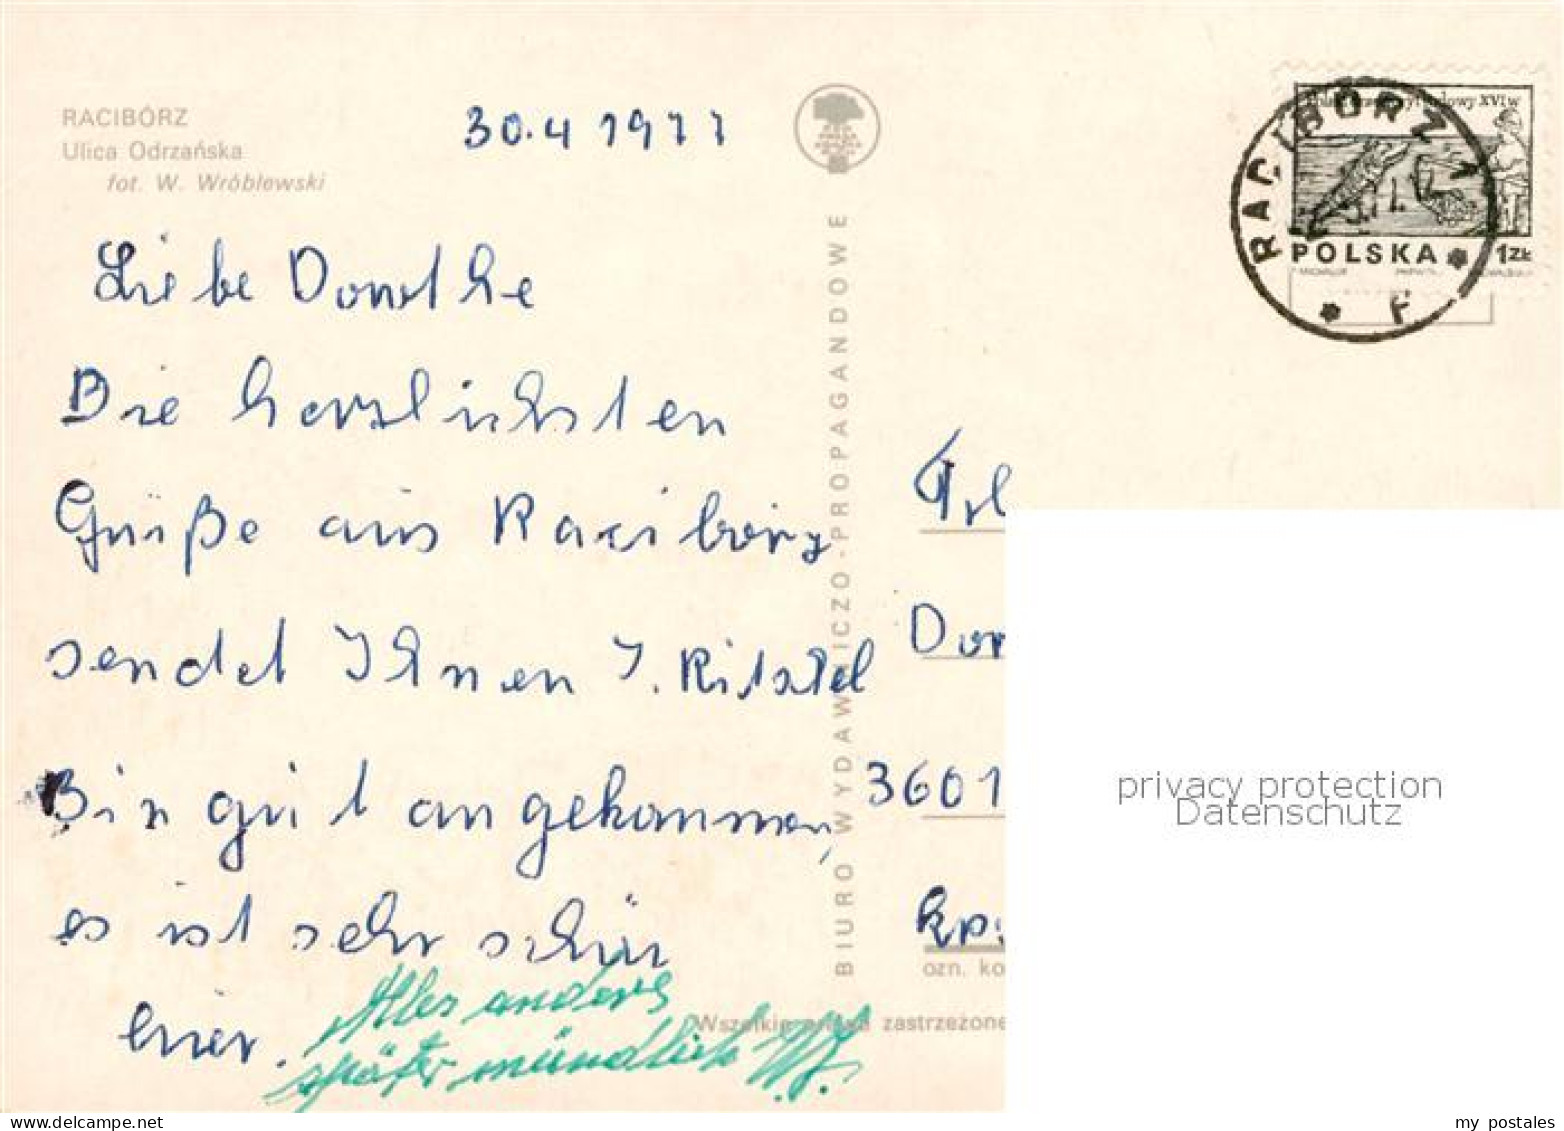 RACIBÓRZ
Ulica Odrzańska
fot. W. Wróblewski
30.4 1977
Liebe Dorothe
Die herzlichsten
Grüße aus Racibórz
sendet Ihnen J.
Bin gut angekommen,
es ist sehr schön
hier.
Alles andere
später mündlich
BIURO WYDAWNICZO-PROPAGANDOWE
RACIBÓRZ 1
F
XVI w
POLSKA 1 ZŁ
Frl
Dor
3601
ozn. ko
Wszelkie prawa zastrzeżone
privacy protection
Datenschutz
delcampe.net
my postales